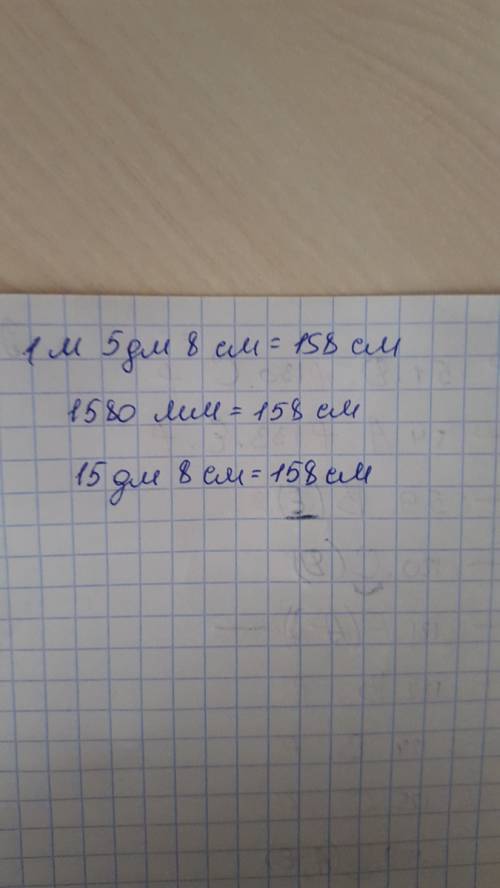 1 м 5 дм 8 см = 158 см
1580 мм = 158 см
15 дм 8 см = 158 см